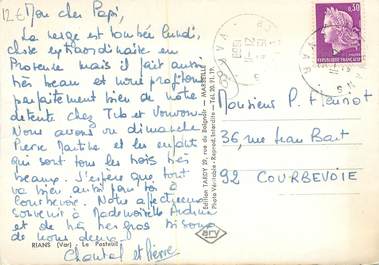 12 € Mon cher Papi,
La neige est tombée lundi,
chose extraordinaire en
Provence mais il fait aussi très
beau et nous profitons
parfaitement bien de notre
détente chez Tib et Vonvon.
Nous avons vu dimanche
Pierre Marthe et les enfants
qui sont tous les trois très
beaux. J'espère que tout
va bien aussi pour toi à
Courbevoie. Nous affectueux
souvenir à Mademoiselle
et de très gros bisous
de nous deux.
Chantal et Pierre
RIANS (Var) Le Posteuil
Edition TARDY 29, rue du Baignoir - MARSEILLE
Photo Véritable - Reprod. Interdite - Tél. 20.91.19.
VAR
0,30
REPUBLIQUE FRANÇAISE
Monsieur P.
36, rue Jean Bart
92 COURBEVOIE